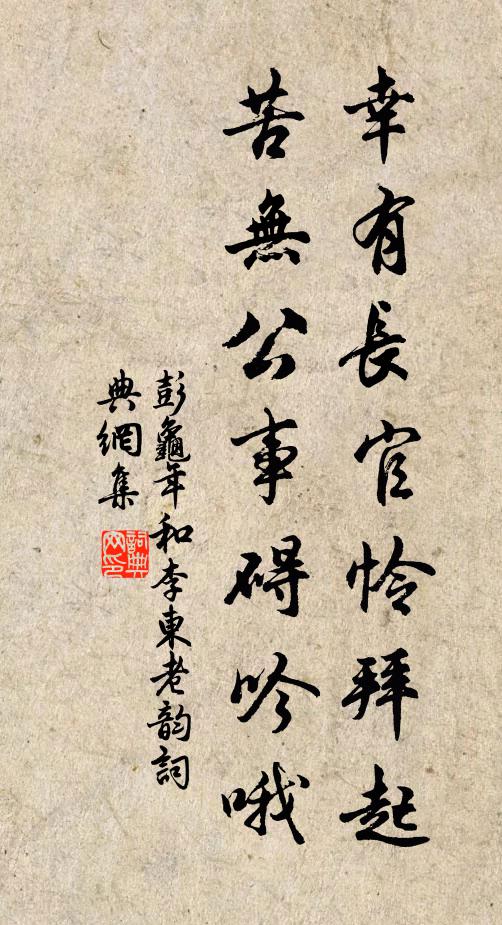 幸有長官怜拜起
苦無公事碍吟哦
彭龜年和李東老韵詞
典網集
詞典网印